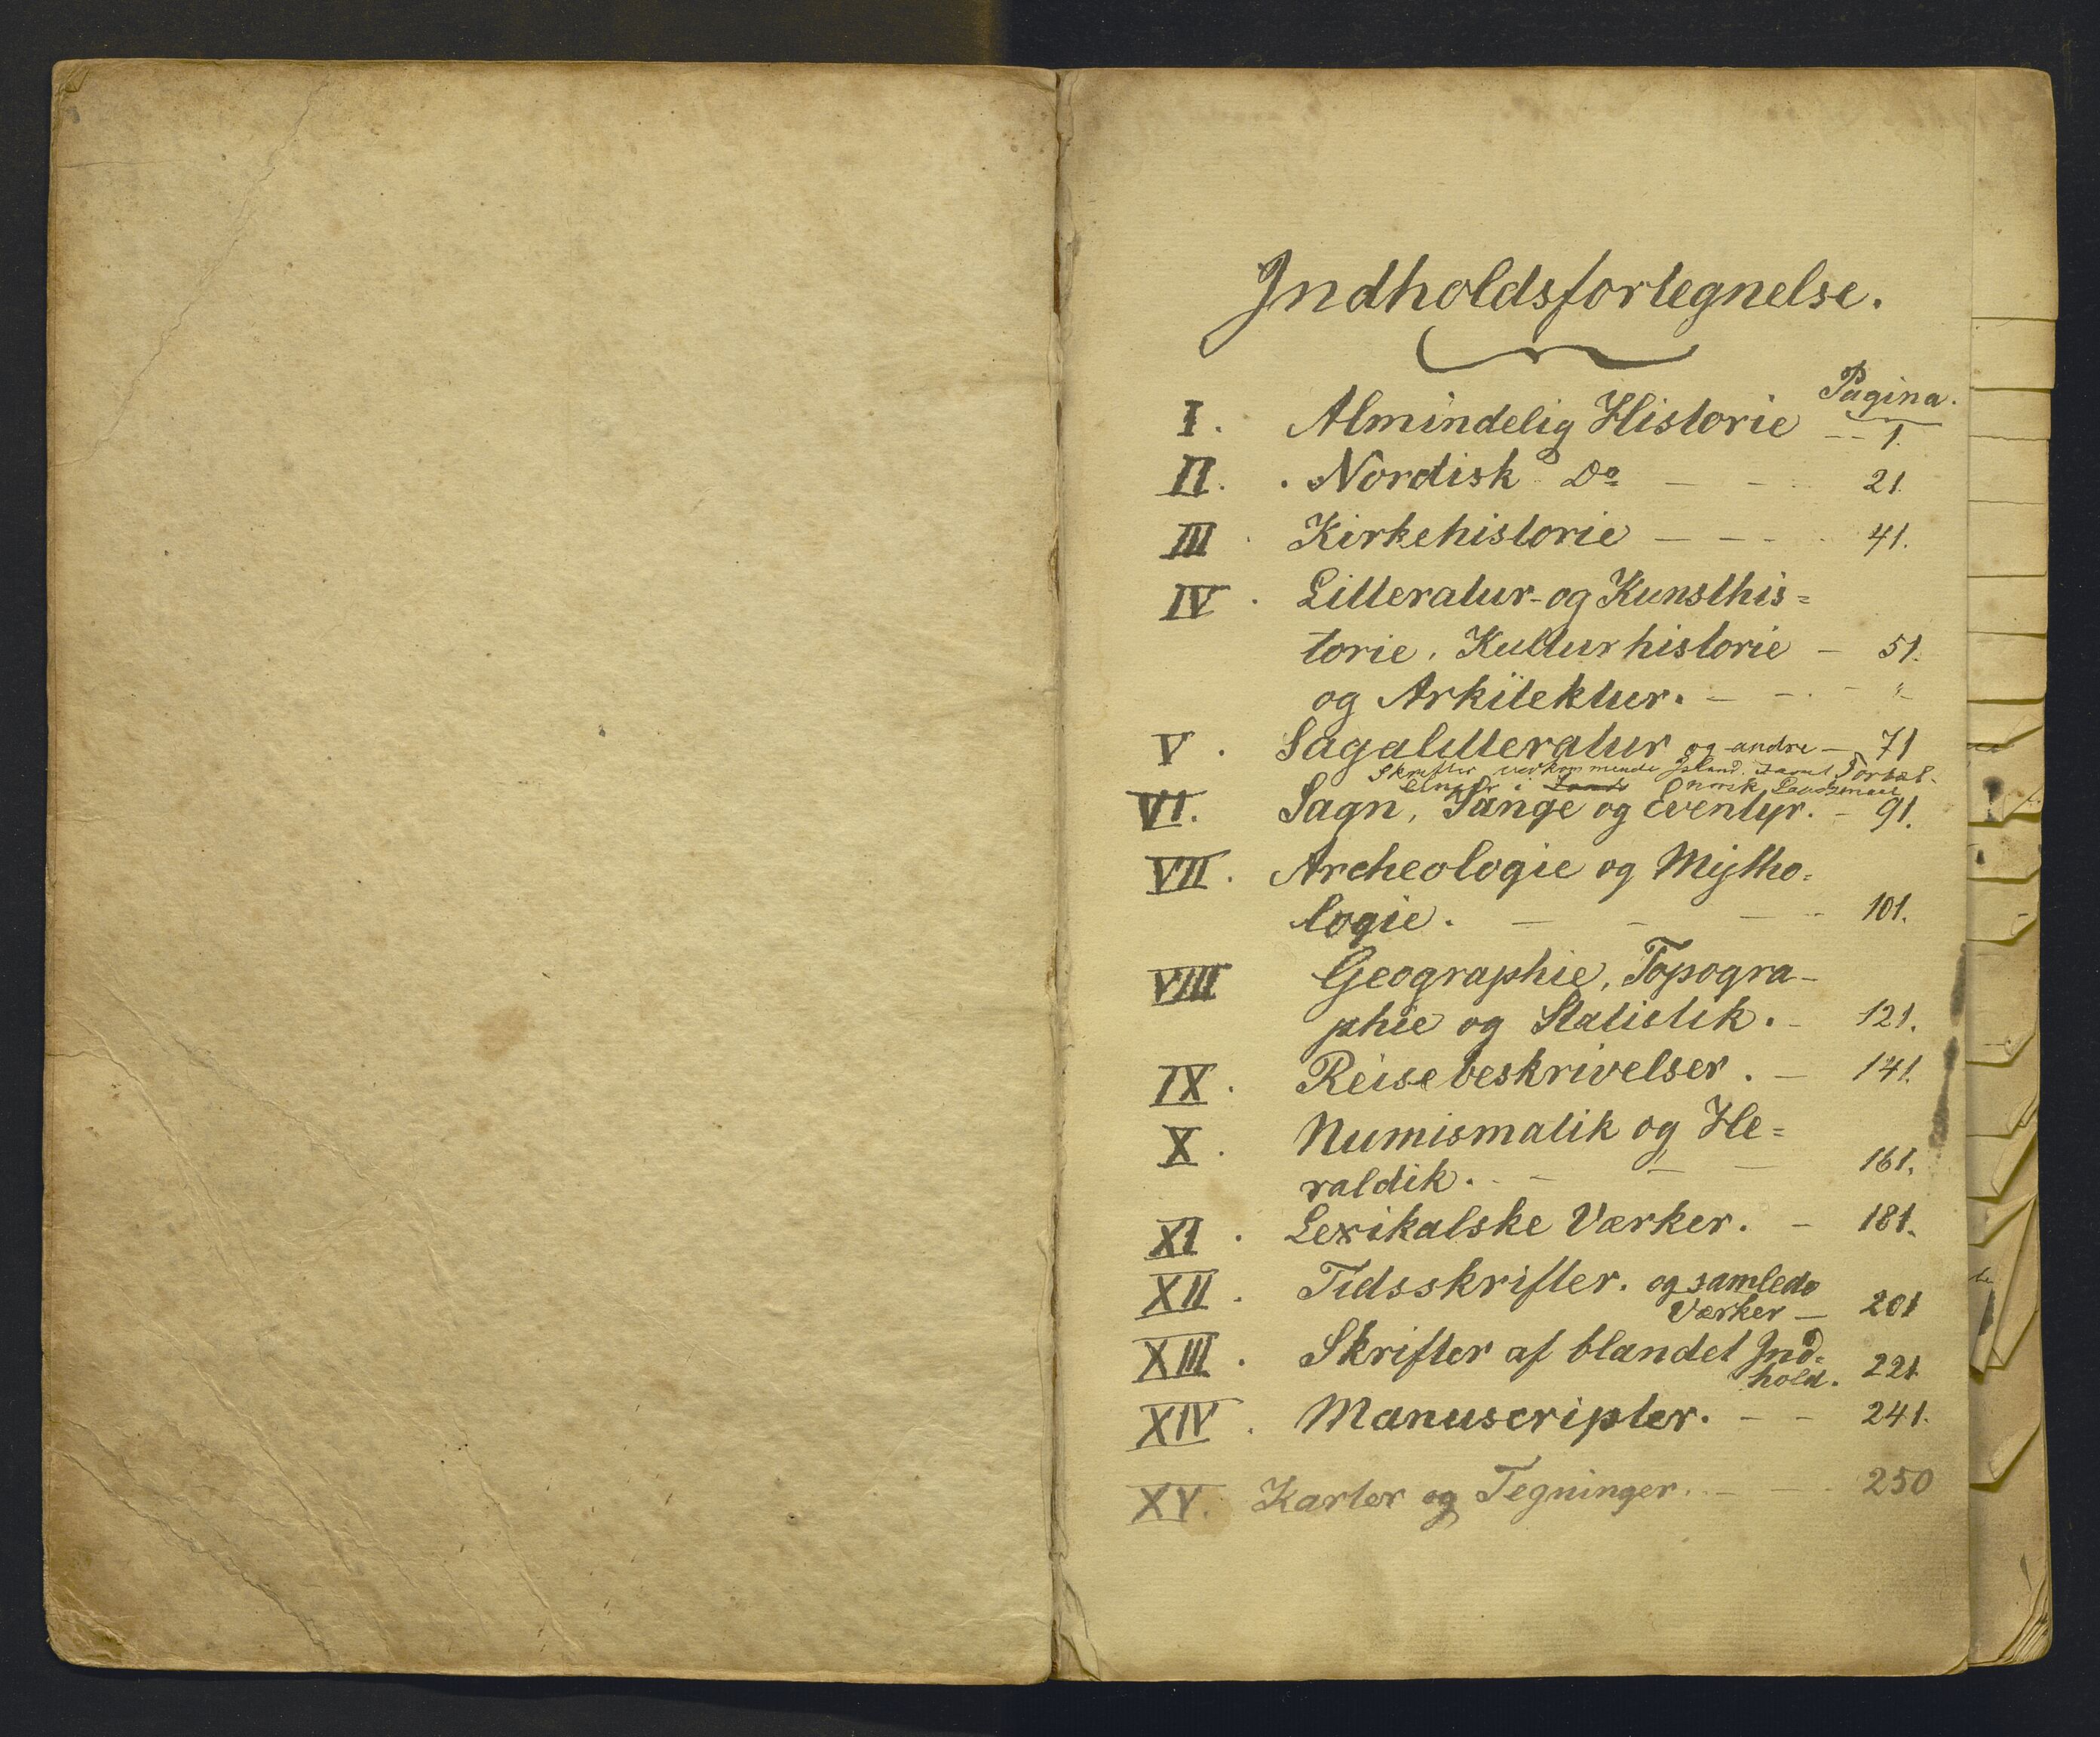 Indholdsfortegnelse.
Pagina.
I. Almindelig Historie -- 1.
II. Nordisk Do - - 21.
III Kirkehistorie - - - 41.
IV. Litteratur- og Kunsthis=
torie, Kulturhistorie - 51.
og Arkitektur. - - . - "
V. Sagalitteratur og andre - 71
Skrifter vedkommende Island. samt Fortæl-
linger i norsk Landsmaal
VI. Sagn, Sange og Eventyr. - 91.
VII. Archeologie og Mytho=
logie. - - - - 101.
VIII Geographie, Topogra-
phie og Statistik. - 121.
IX. Reisebeskrivelser. - 141.
X. Numismatik og He=
raldik. - - - 161.
XI. Lexikalske Værker. - 181.
XII. Tidsskrifter. og samlede
Værker - 201
XIII. Skrifter af blandet Ind=
hold. 221
XIV. Manuscripter. - - 241.
XV. Karter og Tegninger. - - 250